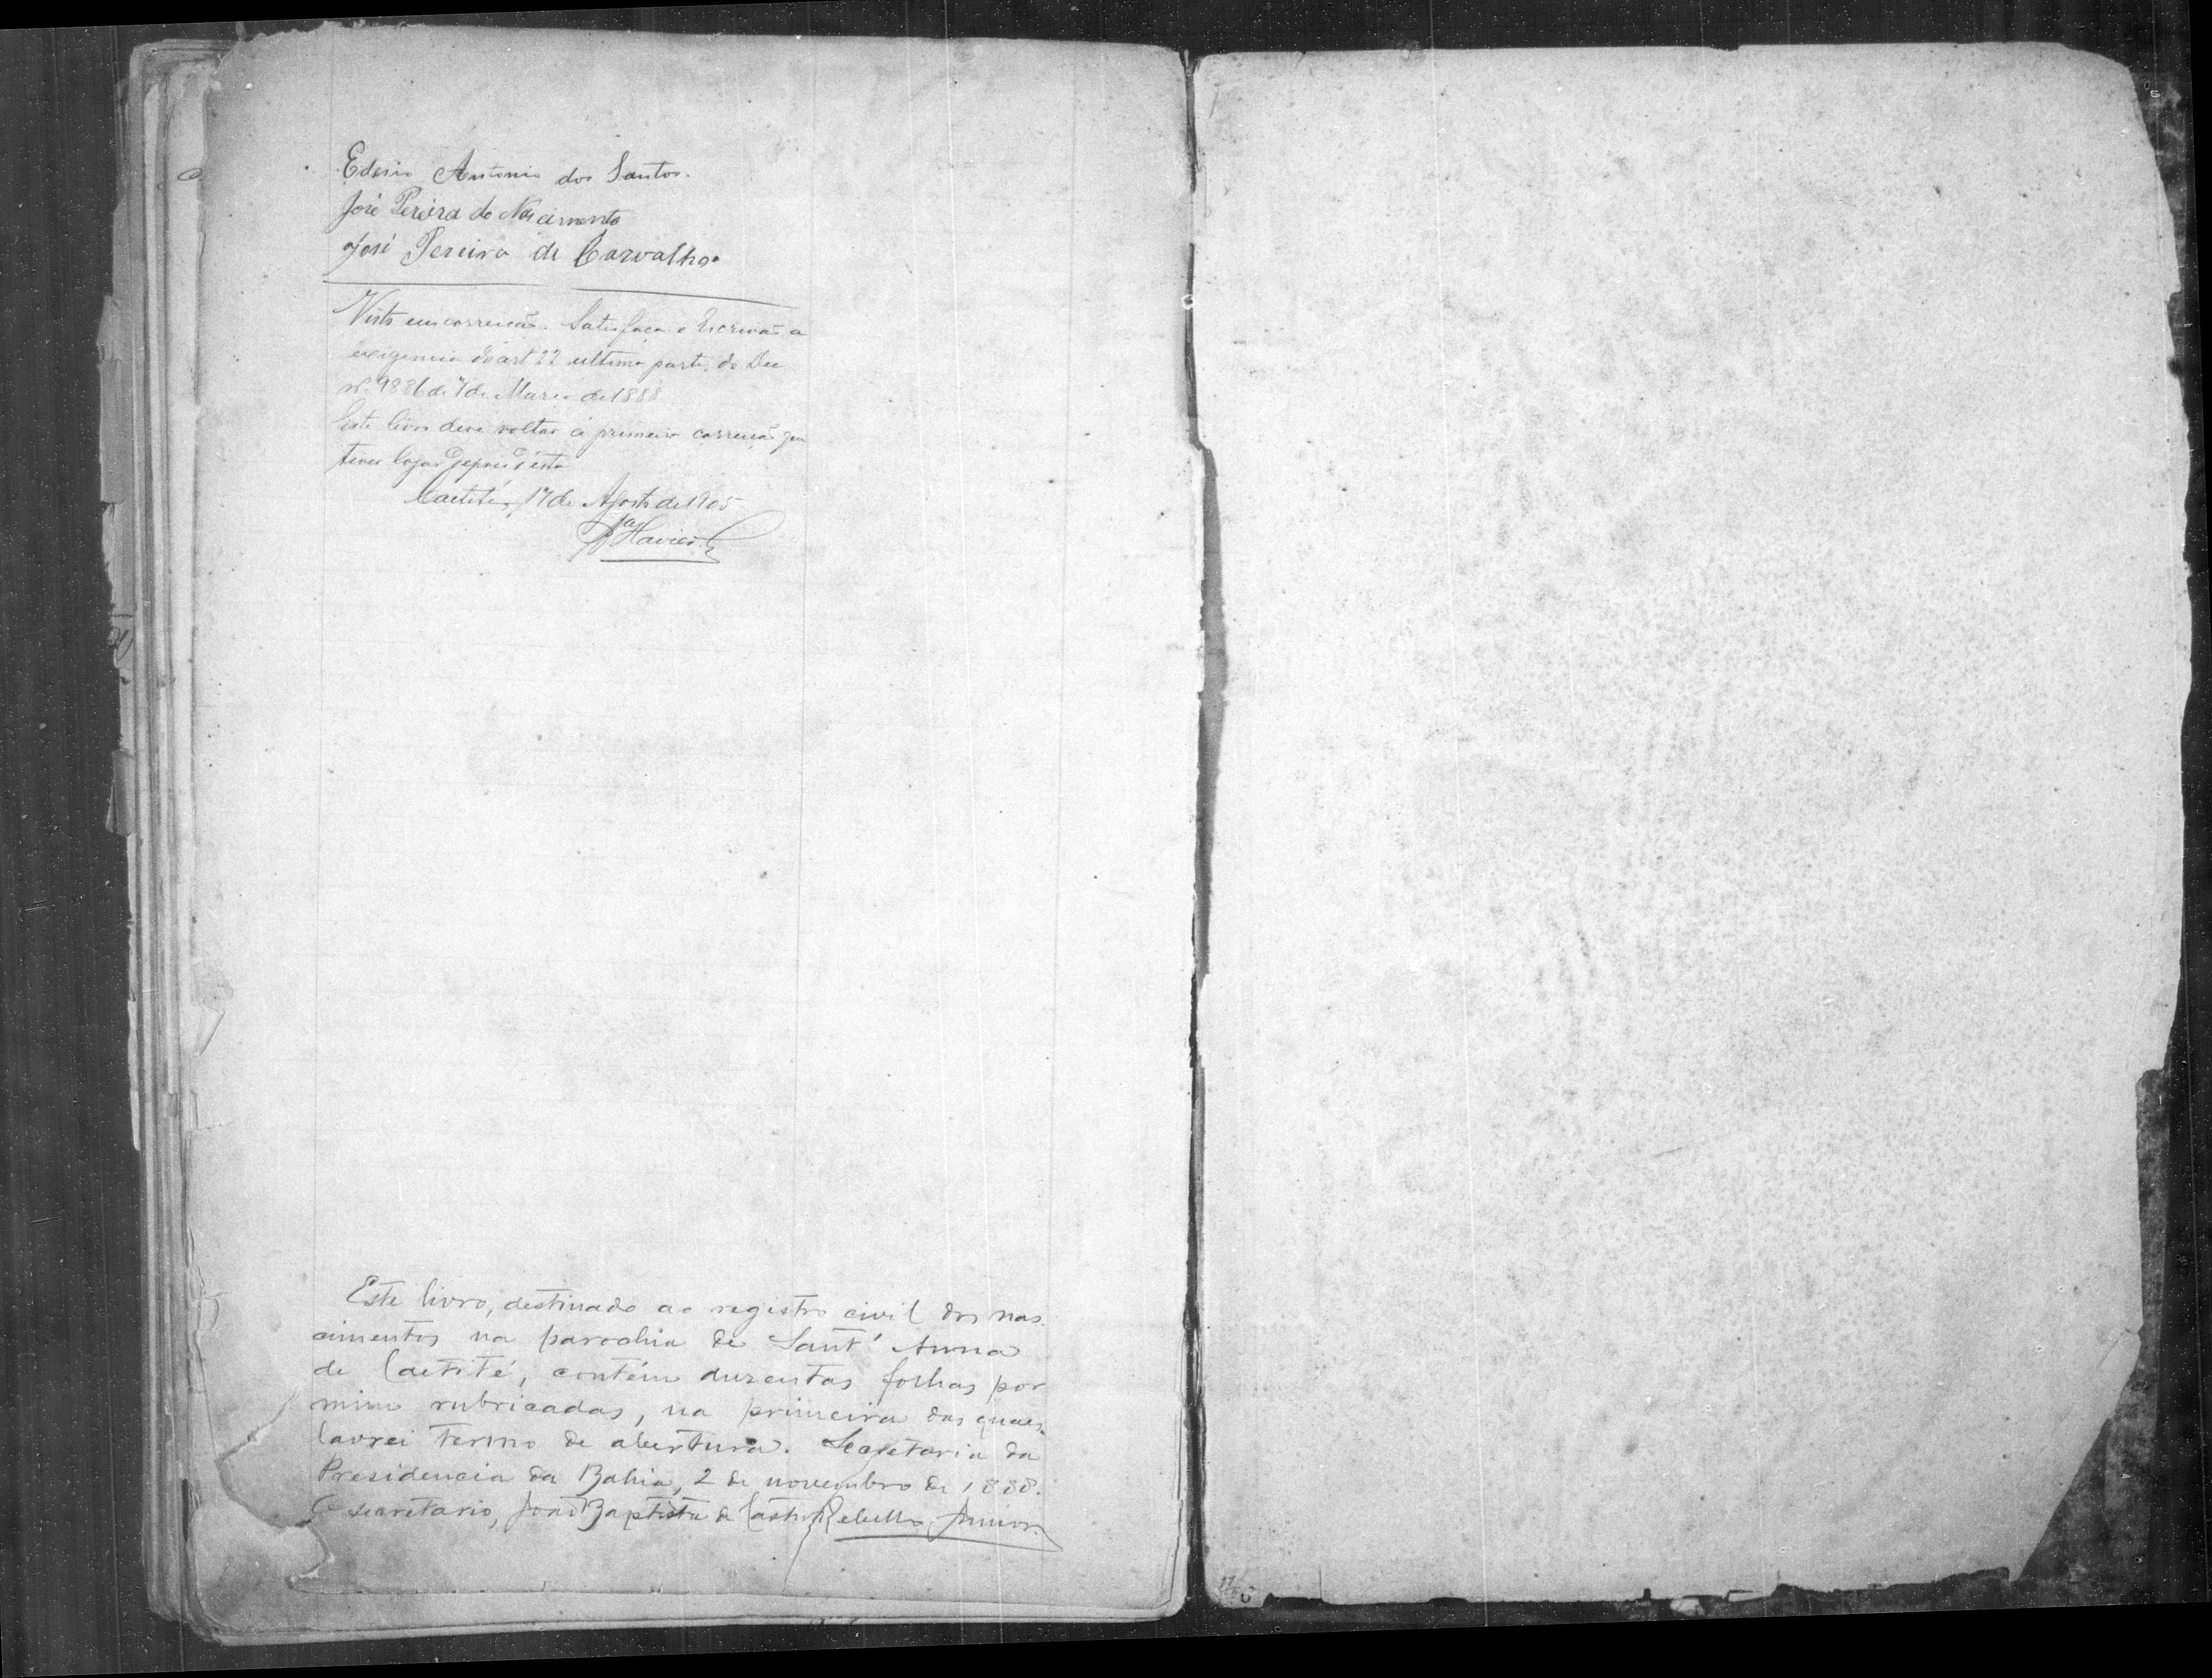 Ederio Antonio dos Santos.
José Pereira do Nascimento
José Pereira de Carvalho.
Visto em correição. Satisfaça o Escrivão a
exigencia do art 22 ultima parte, do Dec
nº 9886 de 7 de Março de 1888
Este livro deve voltar á primeira correição que
tiver logar depois d'esta
Caetité, 17 de Agosto de 1905
Este livro, destinado ao registro civil dos nas
cimentos na parochia de Sant' Anna
de Caetité, contém duzentas folhas por
mim rubricadas, na primeira das quaes
lavrei termo de abertura. Secretaria da
Presidencia da Bahia, 2 de novembro de 1888.
O secretario, João Baptista de Castro Rebello Junior.